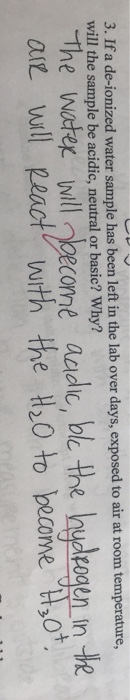 3. If a de-ionized water sample has been left in the lab over days, exposed to air at room temperature,
will the sample be acidic, neutral or basic? Why?
The water will become acidic, b/c the hydrogen in the
air will react with the H₂O to become H₃O⁺.